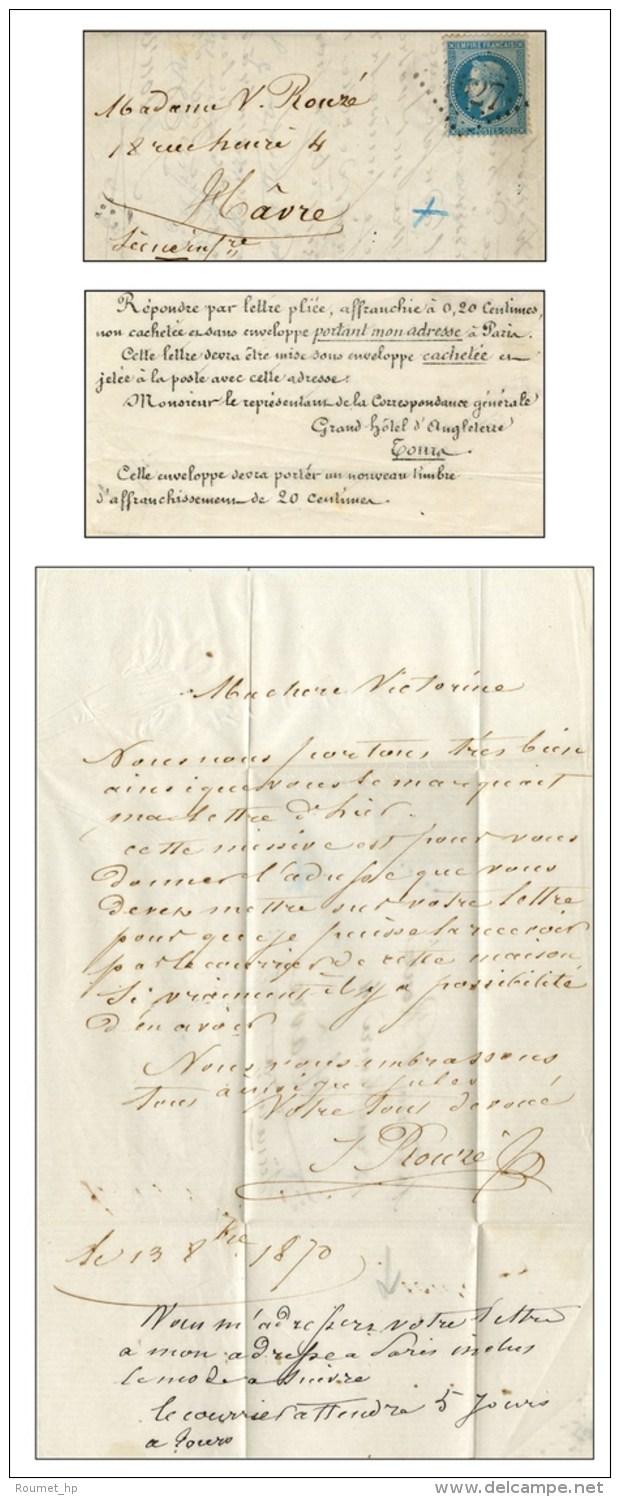 EMPIRE FRANÇAIS
27
Madame V. Rouzé
18 rue henri 4
Hâvre
Seine infre
Répondre par lettre pliée, affranchie à 0,20 Centimes,
non cachetée et sans enveloppe portant mon adresse à Paris.
Cette lettre devra être mise sous enveloppe cachetée et
jetée à la poste avec cette adresse:
Monsieur le représentant de la Correspondance générale
Grand hôtel d'Angleterre
Tours.
Cette enveloppe devra porter un nouveau timbre
d'affranchissement de 20 centimes.
Ma chere Victorine
Nous nous portons très bien
ainsi que vous le marquait
ma lettre d'hier.
cette missive est pour vous
donner l'adresse que vous
devez mettre sur votre lettre
pour que je puisse la recevoir
par le courrier de cette maison
Si vraiment il y a possibilité
d'en avoir
Nous vous embrassons
tous ainsi que jules
Votre tout devoué
Rouzé
le 13 8bre 1870
Vous m'adressera votre lettre
a mon adresse a Paris inclus
le mode a suivre
le courrier attendra 5 Jours
a Tours
Roumet_hp
www.delcampe.net